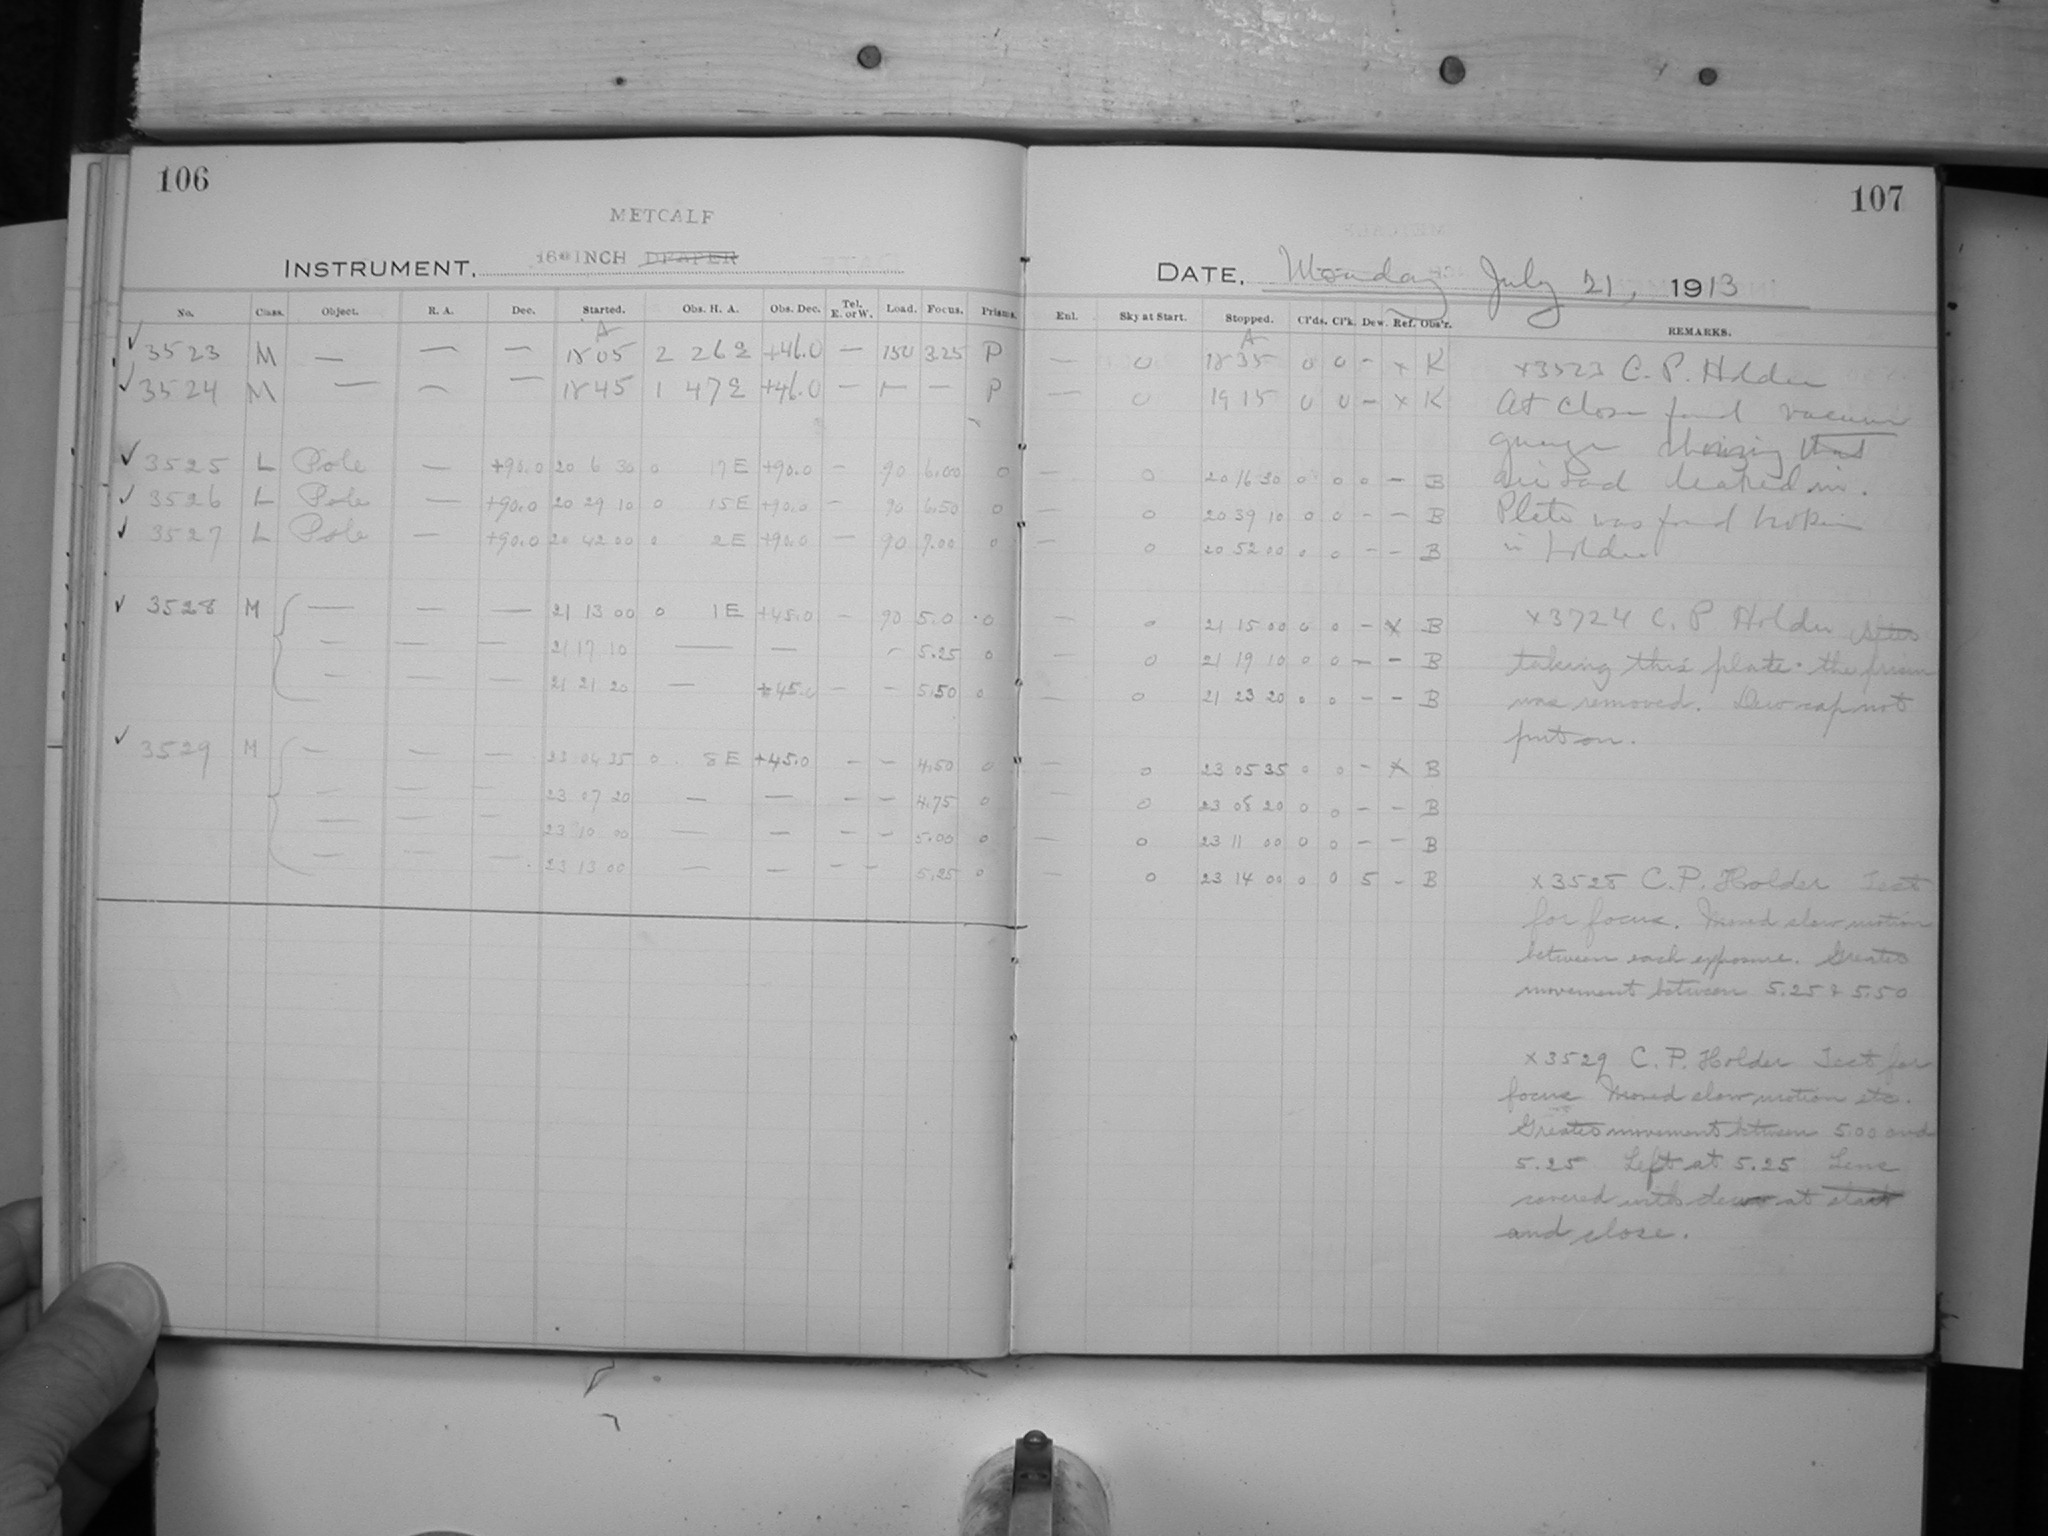 106
METCALF
INSTRUMENT, 16 INCH DRAPER
No. Class. Object. R. A. Dec. Started. Obs. H. A. Obs. Dec. Tel. E. or W. Load. Focus. Prisms.
A
✓ 3523 M — — — 18 05 2 26 E +46.0 — 150 3.25 P
✓ 3524 M — — — 18 45 1 47 E +46.0 — — — P
✓ 3525 L Pole — +90.0 20 6 30 0 17 E +90.0 — 90 6.00 0
✓ 3526 L Pole — +90.0 20 29 10 0 15 E +90.0 — 90 6.50 0
✓ 3527 L Pole — +90.0 20 42 00 0 2 E +90.0 — 90 7.00 0
✓ 3528 M — — — 21 13 00 0 1 E +45.0 — 90 5.0 0
— — — 21 17 10 — — — 5.25 0
— — — 21 21 20 — +45.0 — — 5.50 0
✓ 3529 M — — — 23 04 35 0 8 E +45.0 — — 4.50 0
— — — 23 07 20 — — — — 4.75 0
— — — 23 10 00 — — — — 5.00 0
— — — 23 13 00 — — — — 5.25 0
107
DATE, Monday July 21, 1913
Enl. Sky at Start. Stopped. Cl'ds. Cl'k. Dew. Ref. Obs'r. REMARKS.
A
— 0 18 35 0 0 — x K
— 0 19 15 0 0 — x K
— 0 20 16 30 0 0 0 — B
— 0 20 39 10 0 0 — — B
— 0 20 52 00 0 0 — — B
— 0 21 15 00 0 0 — x B
— 0 21 19 10 0 0 — — B
— 0 21 23 20 0 0 — — B
— 0 23 05 35 0 0 — x B
— 0 23 08 20 0 0 — — B
— 0 23 11 00 0 0 — — B
— 0 23 14 00 0 0 5 — B
x3523 C. P. Holder
At close found vacuum
guage showing that
air had leaked in.
Plate was found broken
in holder
x3724 C. P Holder After
taking this plate the prism
was removed. Dewcap not
put on.
x3528 C. P. Holder Test
for focus. Moved slow motion
between each exposure. Greater
movement between 5.25 & 5.50
x3529 C. P. Holder Test for
focus Moved slow motion etc.
Greater movement between 5.00 and
5.25 Left at 5.25 Lens
covered with dew at start
and close.